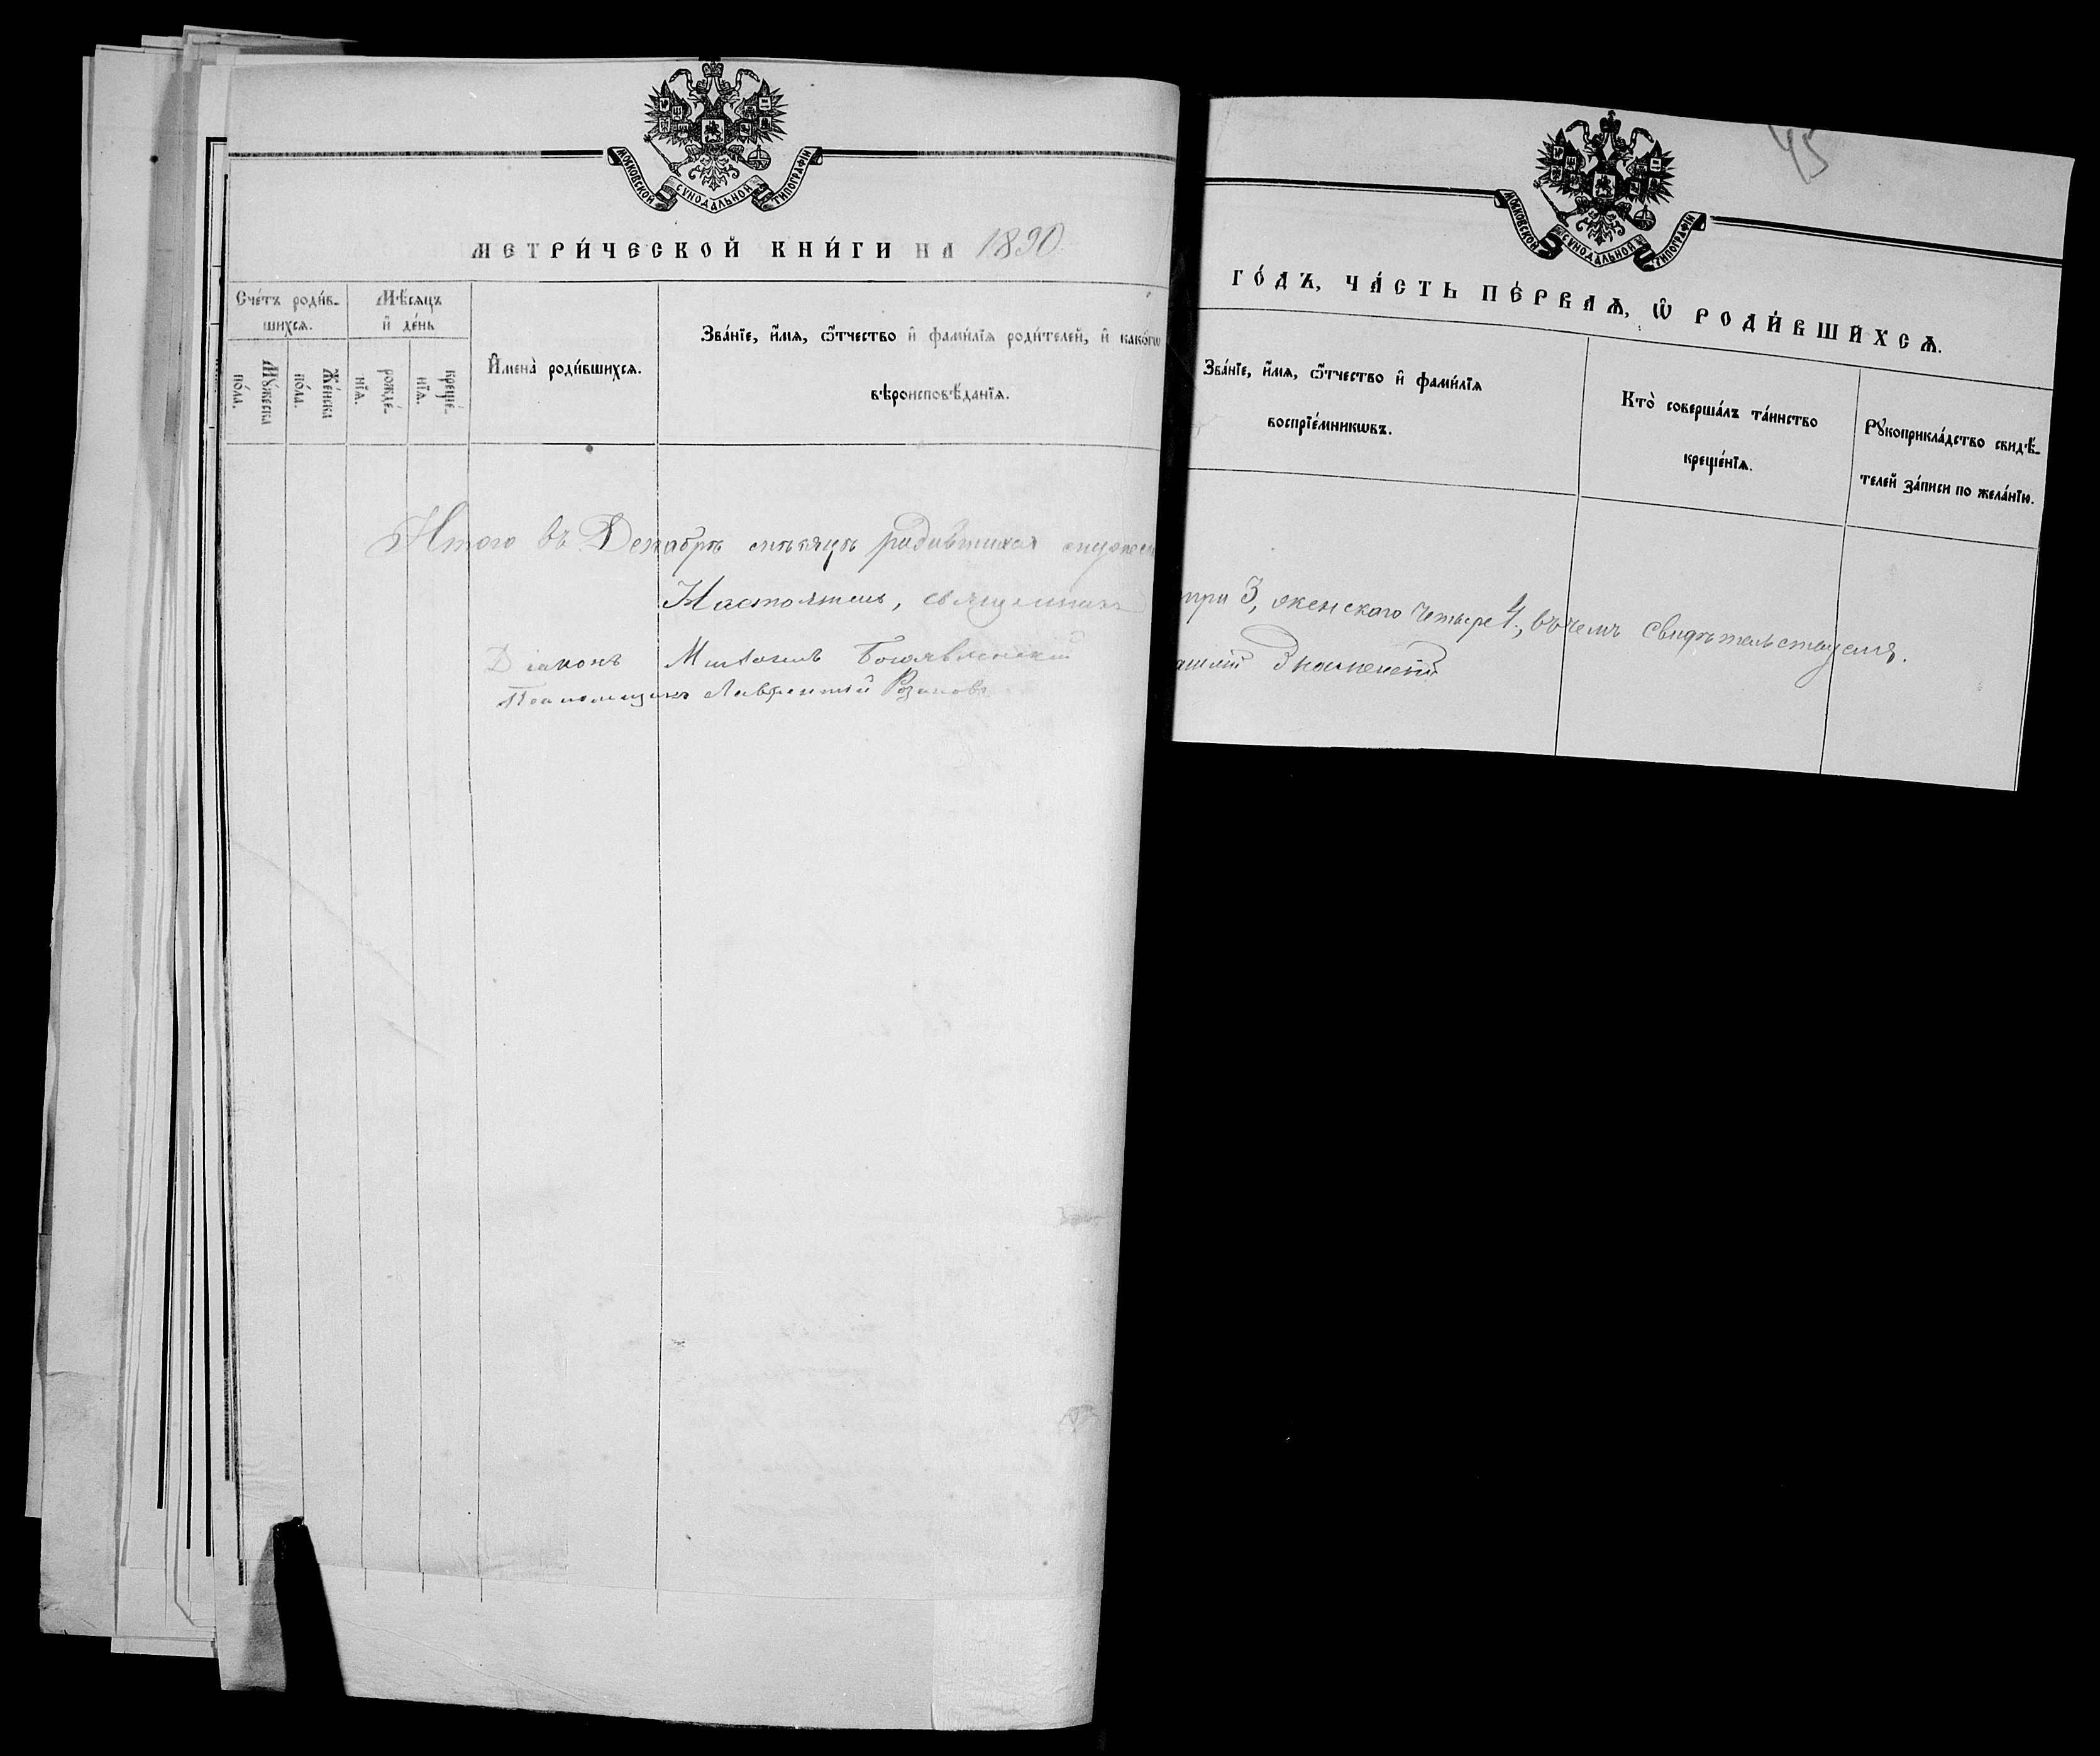 МОСКОВСКОЙ СѴНОДАЛЬНОЙ ТИПОГРАФІИ
МЕТРИ́ЧЕСКОЙ КНИ́ГИ НА 1890
Сче́тъ роди́в-
шихсѧ.
Мѣ́сѧцъ
и҆ де́нь
Мꙋ́жеска
по́ла.
Же́нска
по́ла.
рожде́-
нїѧ.
креще́-
нїѧ.
И҆мена̀ роди́вшихсѧ.
Зва́нїе, и҆́мѧ, ѻ҆́тчество и҆ фами́лїѧ роди́телей, и҆ како́гѡ
вѣроисповѣ́данїѧ.
Итого въ Декабрѣ мѣсяцѣ родившихся мужеск
Настоятель, священникъ
Діаконъ Богоявленскій
Псаломщикъ Лаврентій Розановъ
45
МОСКОВСКОЙ СѴНОДАЛЬНОЙ ТИПОГРАФІИ
ГО́ДЪ, ЧА́СТЬ ПЕ́РВАѦ, Ѡ҆ РОДИ́ВШИХСѦ.
Зва́нїе, и҆́мѧ, ѻ҆́тчество и҆ фами́лїѧ
воспрїе́мникѡвъ.
Кто̀ соверша́лъ та́инство
креще́нїѧ.
Рꙋкоприкла́дство свидѣ́-
телей за́писи по жела́нїю.
три 3, женскаго четыре 4, въ чемъ свидѣтельствуемъ.
Знаменскій